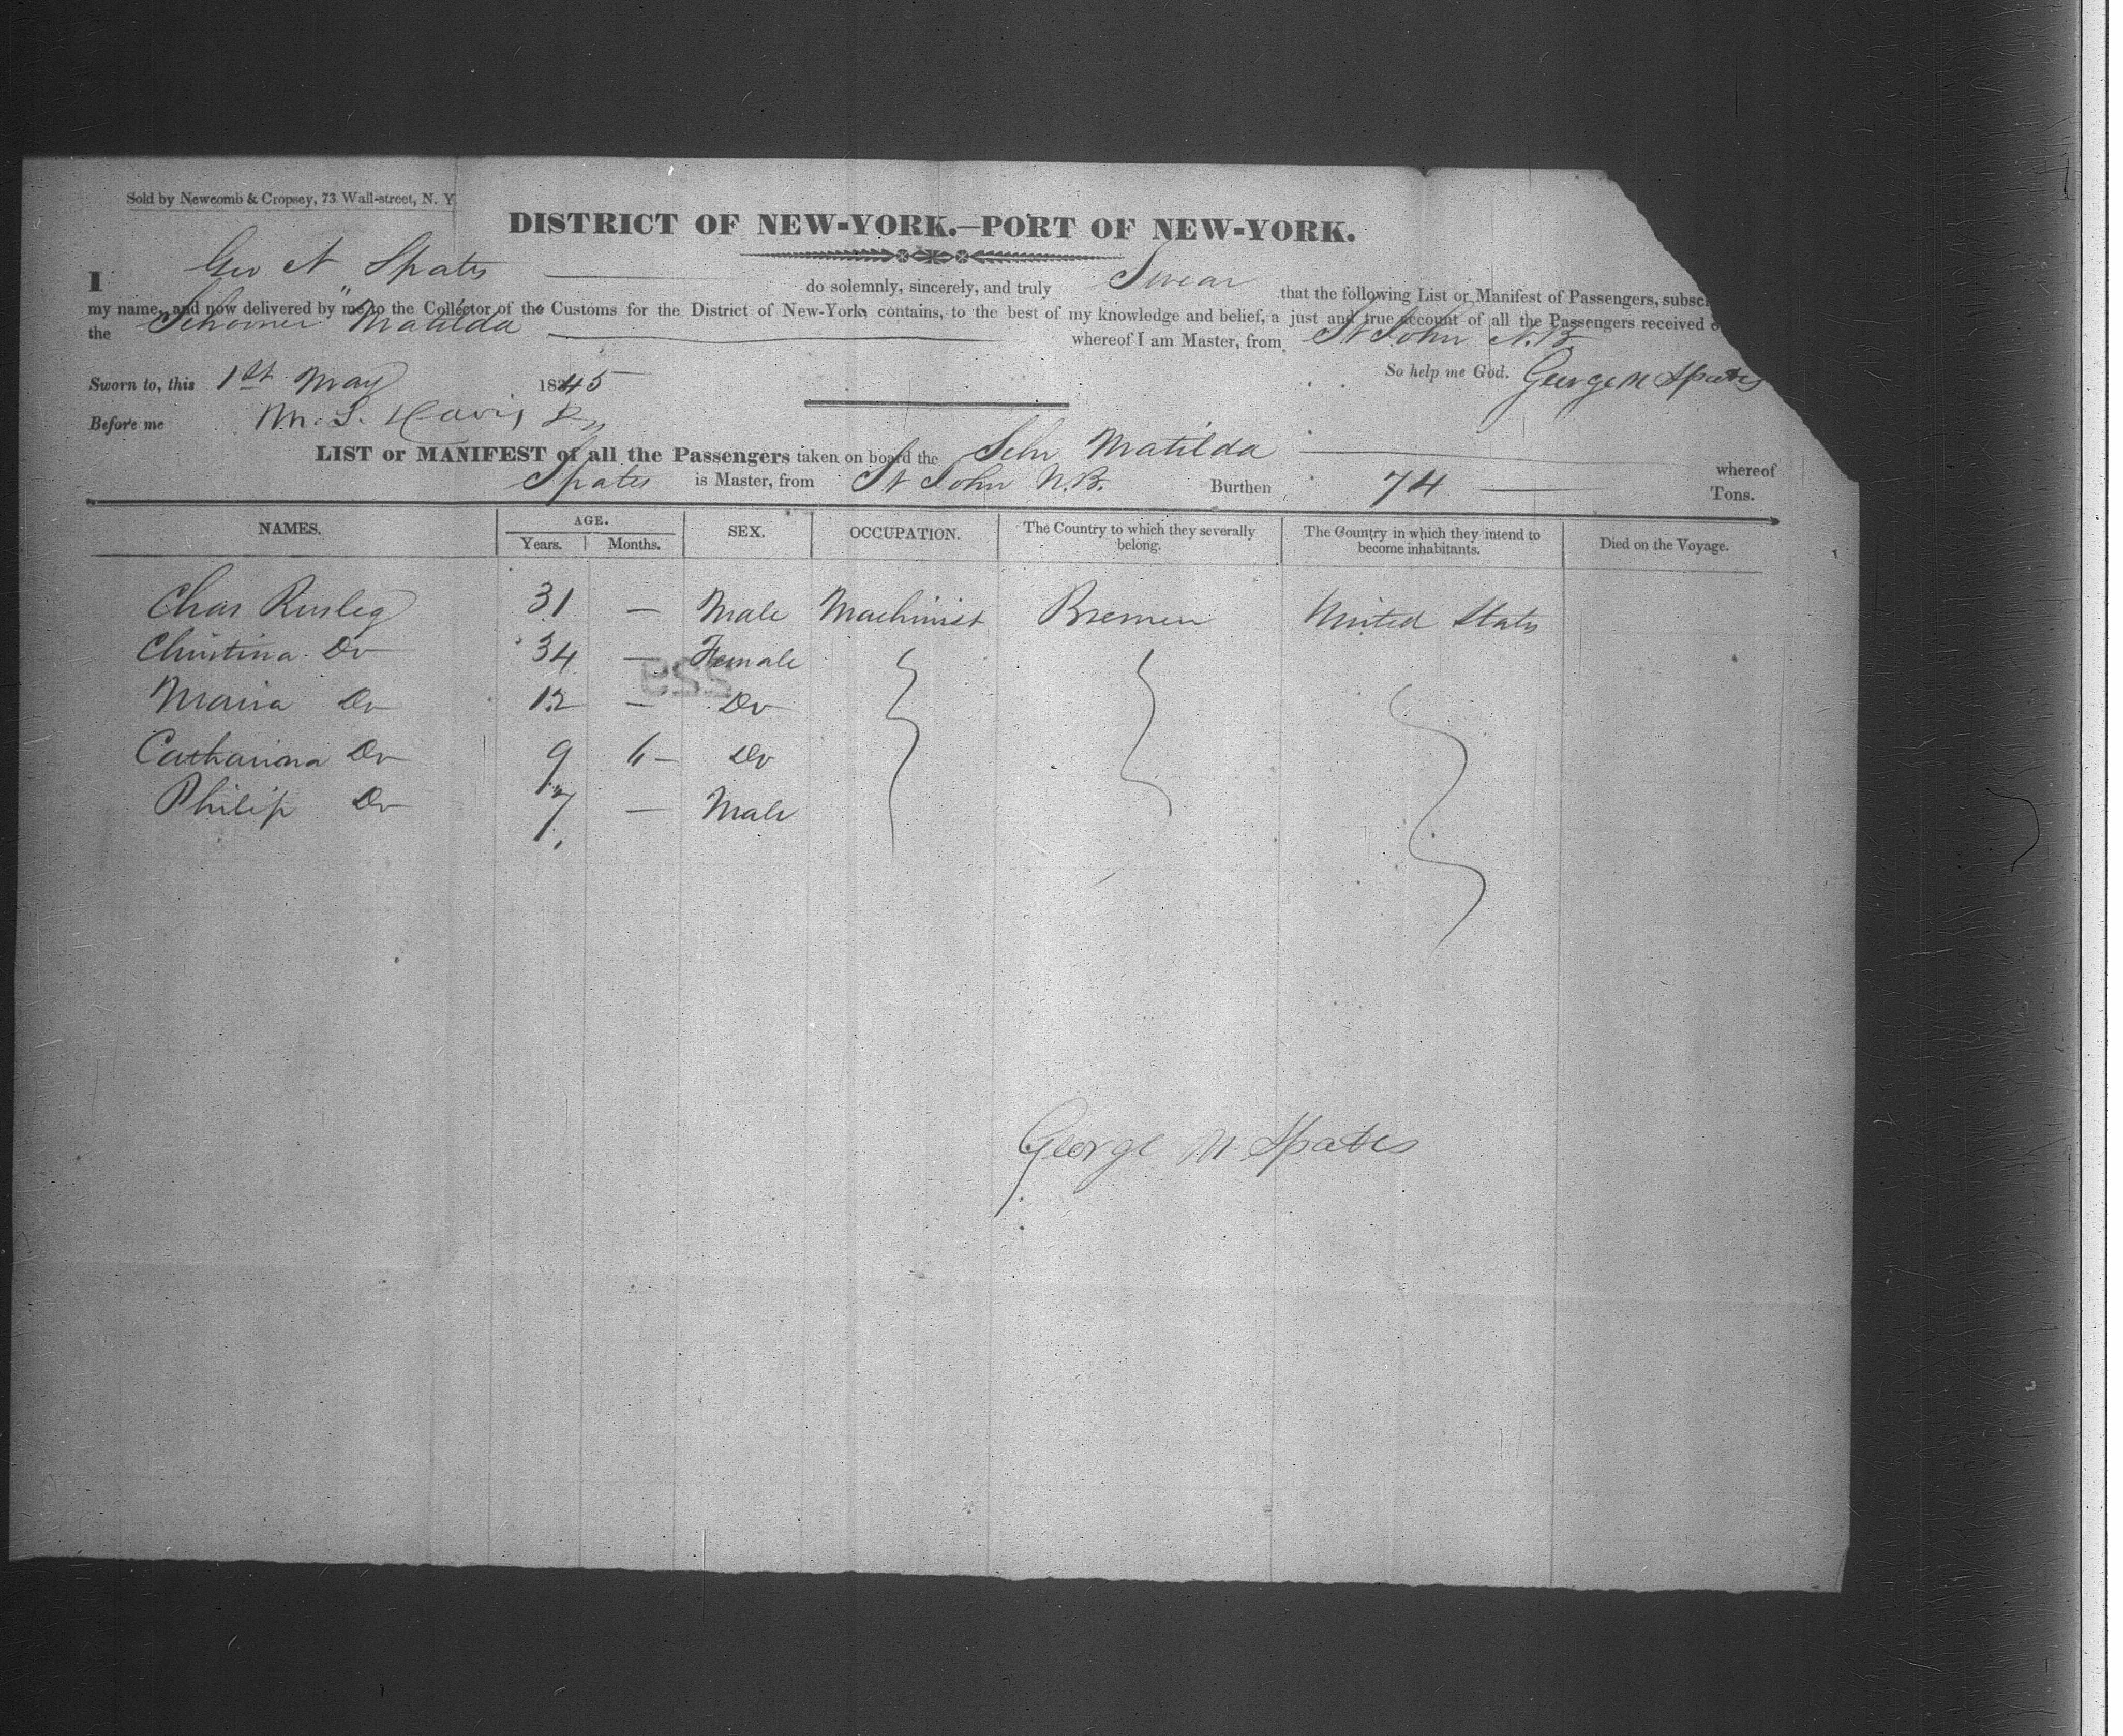 Sold by Newcomb & Cropsey, 73 Wall-street, N. Y.
DISTRICT OF NEW-YORK.—PORT OF NEW-YORK.
I Geo N Spates do solemnly, sincerely, and truly Swear that the following List or Manifest of Passengers, subsc
my name, and now delivered by me to the Collector of the Customs for the District of New-York, contains, to the best of my knowledge and belief, a just and true account of all the Passengers received
the Schooner Matilda whereof I am Master, from St John N.B.
So help me God. George M Spates
Sworn to, this 1st May 1845
Before me M. L. Davis
LIST or MANIFEST of all the Passengers taken on board the Schr Matilda whereof
Spates is Master, from St John N.B. Burthen 74 Tons.
NAMES. AGE. Years. Months. SEX. OCCUPATION. The Country to which they severally belong. The Country in which they intend to become inhabitants. Died on the Voyage.
Chas 31 — Male Machinist Bremen United States
Christina Do 34 — Female
Maria Do 12 — Do
Catharina Do 9 6 — Do
Philip Do 7 — Male
George M. Spates